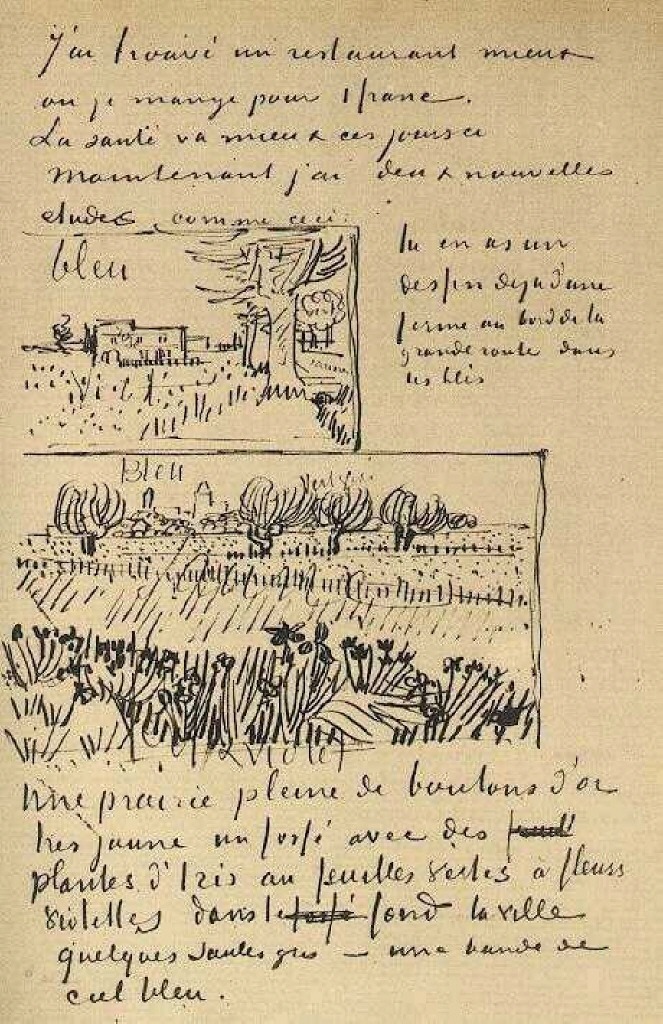 J'ai trouvé un restaurant mieux
ou je mange pour 1 franc.
La santé va mieux ces jours ci
Maintenant j'ai deux nouvelles
etudes comme ceci:
bleu
tu en as un
dessin deja d'une
ferme au bord de la
grande route dans
les blés
Bleu
vert gris
violet
Une prairie pleine de boutons d'or
tres jaune un fossé avec des
plantes d'Iris au feuilles vertes à fleurs
violettes dans le fossé fond la ville
quelques saules gris – une bande de
ciel bleu.